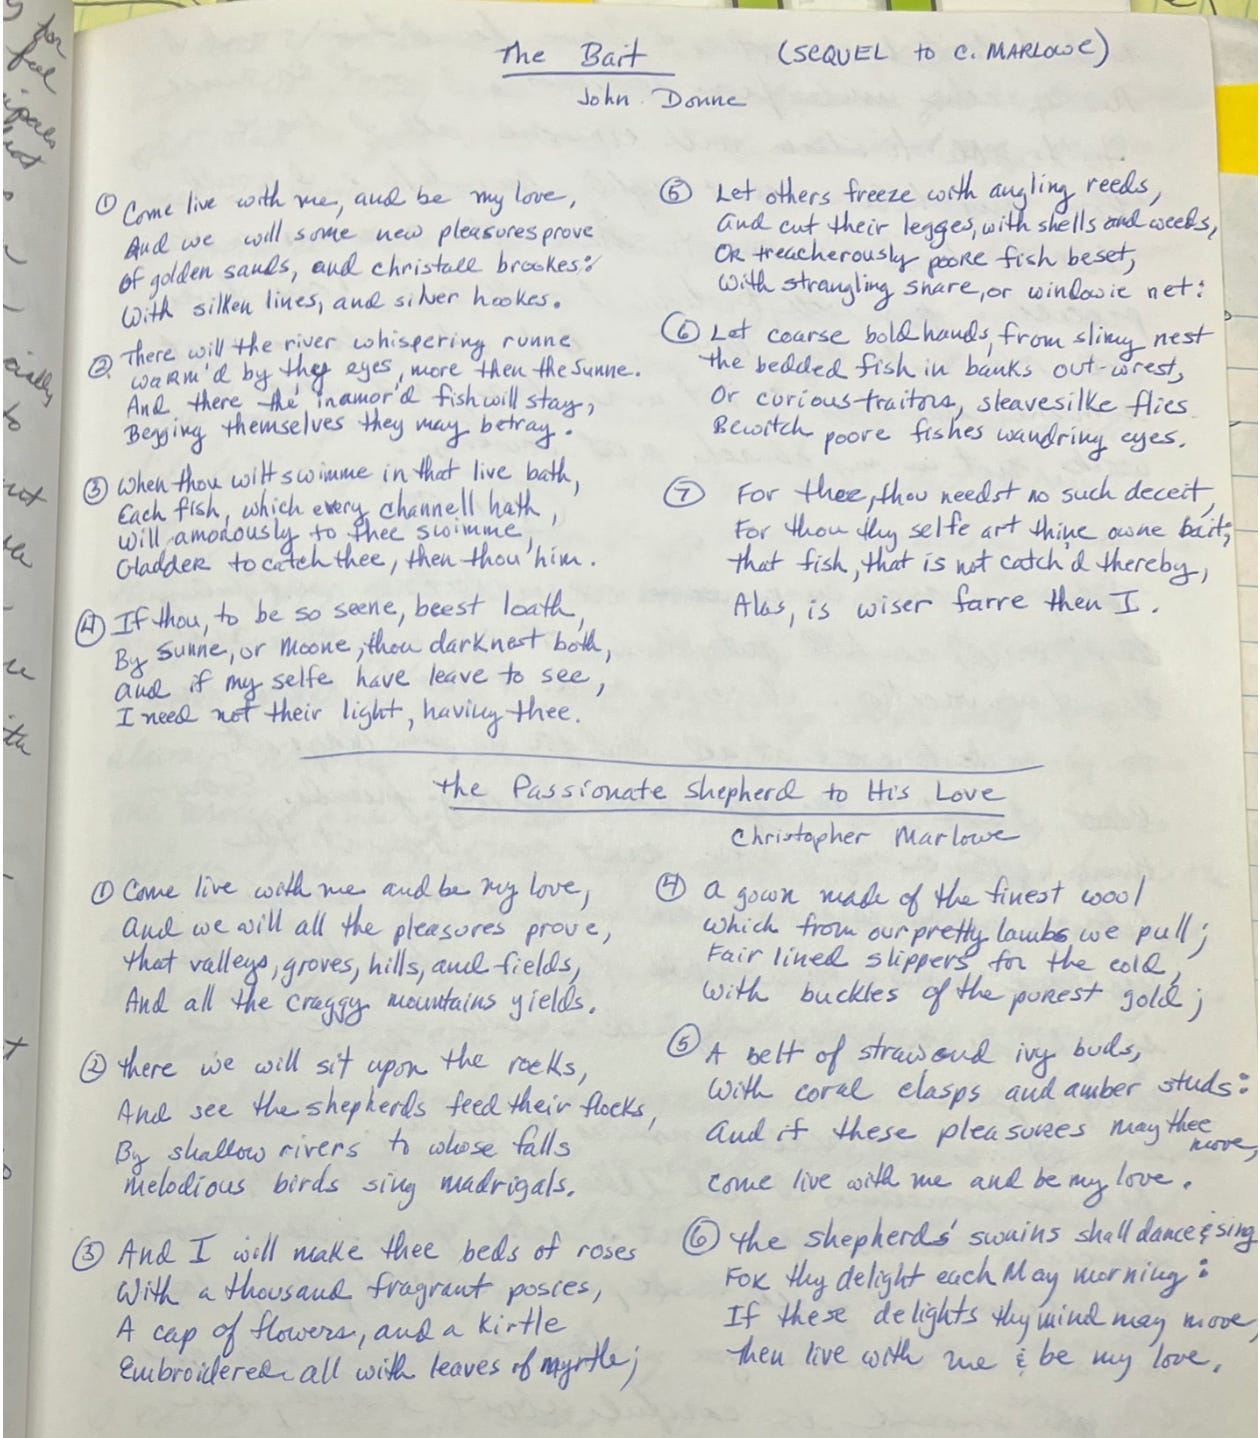 for
feel
The Bait (SEQUEL to C. MARLOWE)
John Donne
① Come live with me, and be my love,
And we will some new pleasures prove
Of golden sands, and christall brookes:
With silken lines, and silver hookes.
② There will the river whispering runne
WARM'd by thy eyes, more then the Sunne.
And there the inamor'd fish will stay,
Begging themselves they may betray.
③ When thou wilt swimme in that live bath,
Each fish, which every channell hath,
Will amorously to thee swimme,
Gladder to catch thee, then thou him.
④ If thou, to be so seene, beest loath,
By Sunne, or Moone, thou darknest both,
and if my selfe have leave to see,
I need not their light, having thee.
⑤ Let others freeze with angling reeds,
And cut their legges, with shells and weeds,
OR treacherously poore fish beset,
With strangling snare, or windowie net:
⑥ Let coarse bold hands, from slimy nest
the bedded fish in banks out-wrest,
Or curious traitors, sleavesilke flies
Bewitch poore fishes wandring eyes.
⑦ For thee, thou needst no such deceit,
For thou thy selfe art thine owne bait;
that fish, that is not catch'd thereby,
Alas, is wiser farre then I.
the Passionate Shepherd to His Love
Christopher Marlowe
① Come live with me and be my love,
And we will all the pleasures prove,
that valleys, groves, hills, and fields,
And all the craggy mountains yields.
② there we will sit upon the rocks,
And see the shepherds feed their flocks,
By shallow rivers to whose falls
melodious birds sing madrigals.
③ And I will make thee beds of roses
With a thousand fragrant posies,
A cap of flowers, and a kirtle
Embroidered all with leaves of myrtle;
④ A gown made of the finest wool
which from our pretty lambs we pull;
Fair lined slippers for the cold,
With buckles of the purest gold;
⑤ A belt of straw and ivy buds,
With coral clasps and amber studs:
And if these pleasures may thee
move,
come live with me and be my love.
⑥ the shepherds' swains shall dance & sing
FOR thy delight each May morning:
If these delights thy mind may move,
then live with me & be my love.